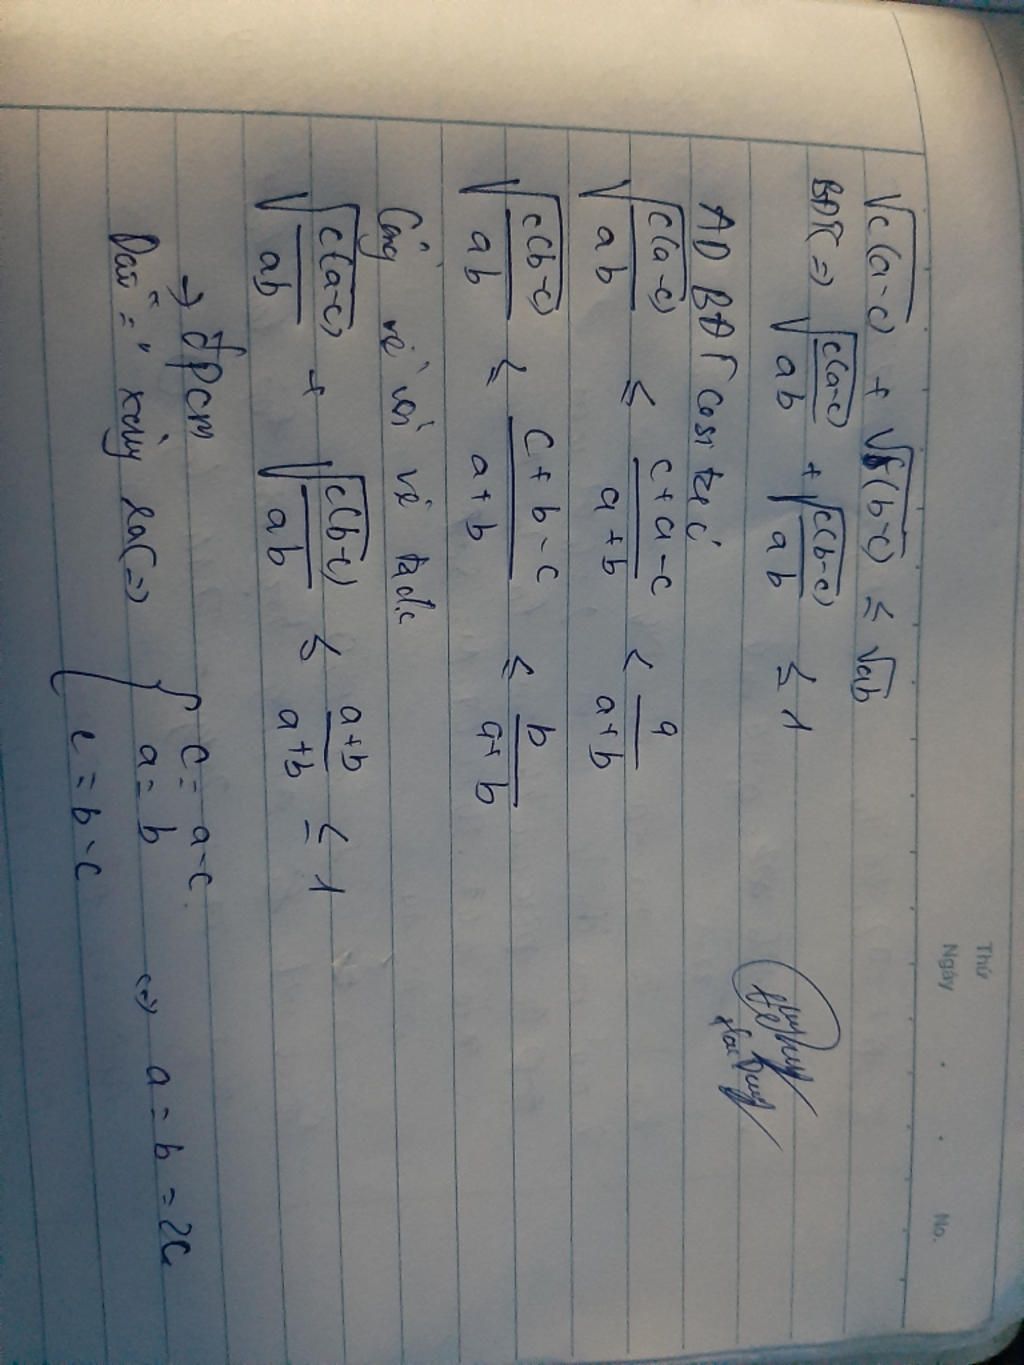 Thứ
Ngày
No.
√c(a-c) + √c(b-c) ≤ √ab
BĐT <=> √(c(a-c)/ab) + √(c(b-c)/ab) ≤ 1
AD BĐT Cosi ta có
√(c(a-c)/ab) ≤ (c+a-c)/(a+b) ≤ a/(a+b)
√(c(b-c)/ab) ≤ (c+b-c)/(a+b) ≤ b/(a+b)
Cộng vế với vế ta đc
√(c(a-c)/ab) + √(c(b-c)/ab) ≤ (a+b)/(a+b) ≤ 1
→ đpcm
Dấu "=" xảy ra <=> { c = a-c
a = b <=> a = b = 2c
c = b-c